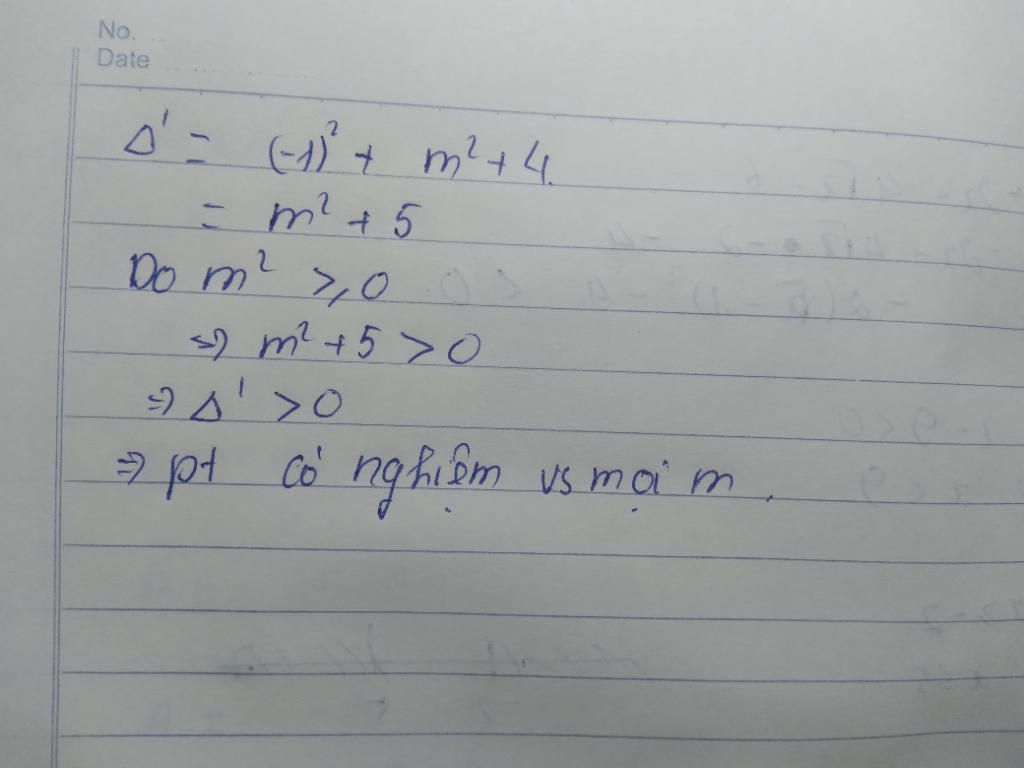 No.
Date
Δ' = (-1)² + m² + 4
= m² + 5
Do m² ≥ 0
⇒ m² + 5 > 0
⇒ Δ' > 0
⇒ pt có nghiệm vs mọi m.